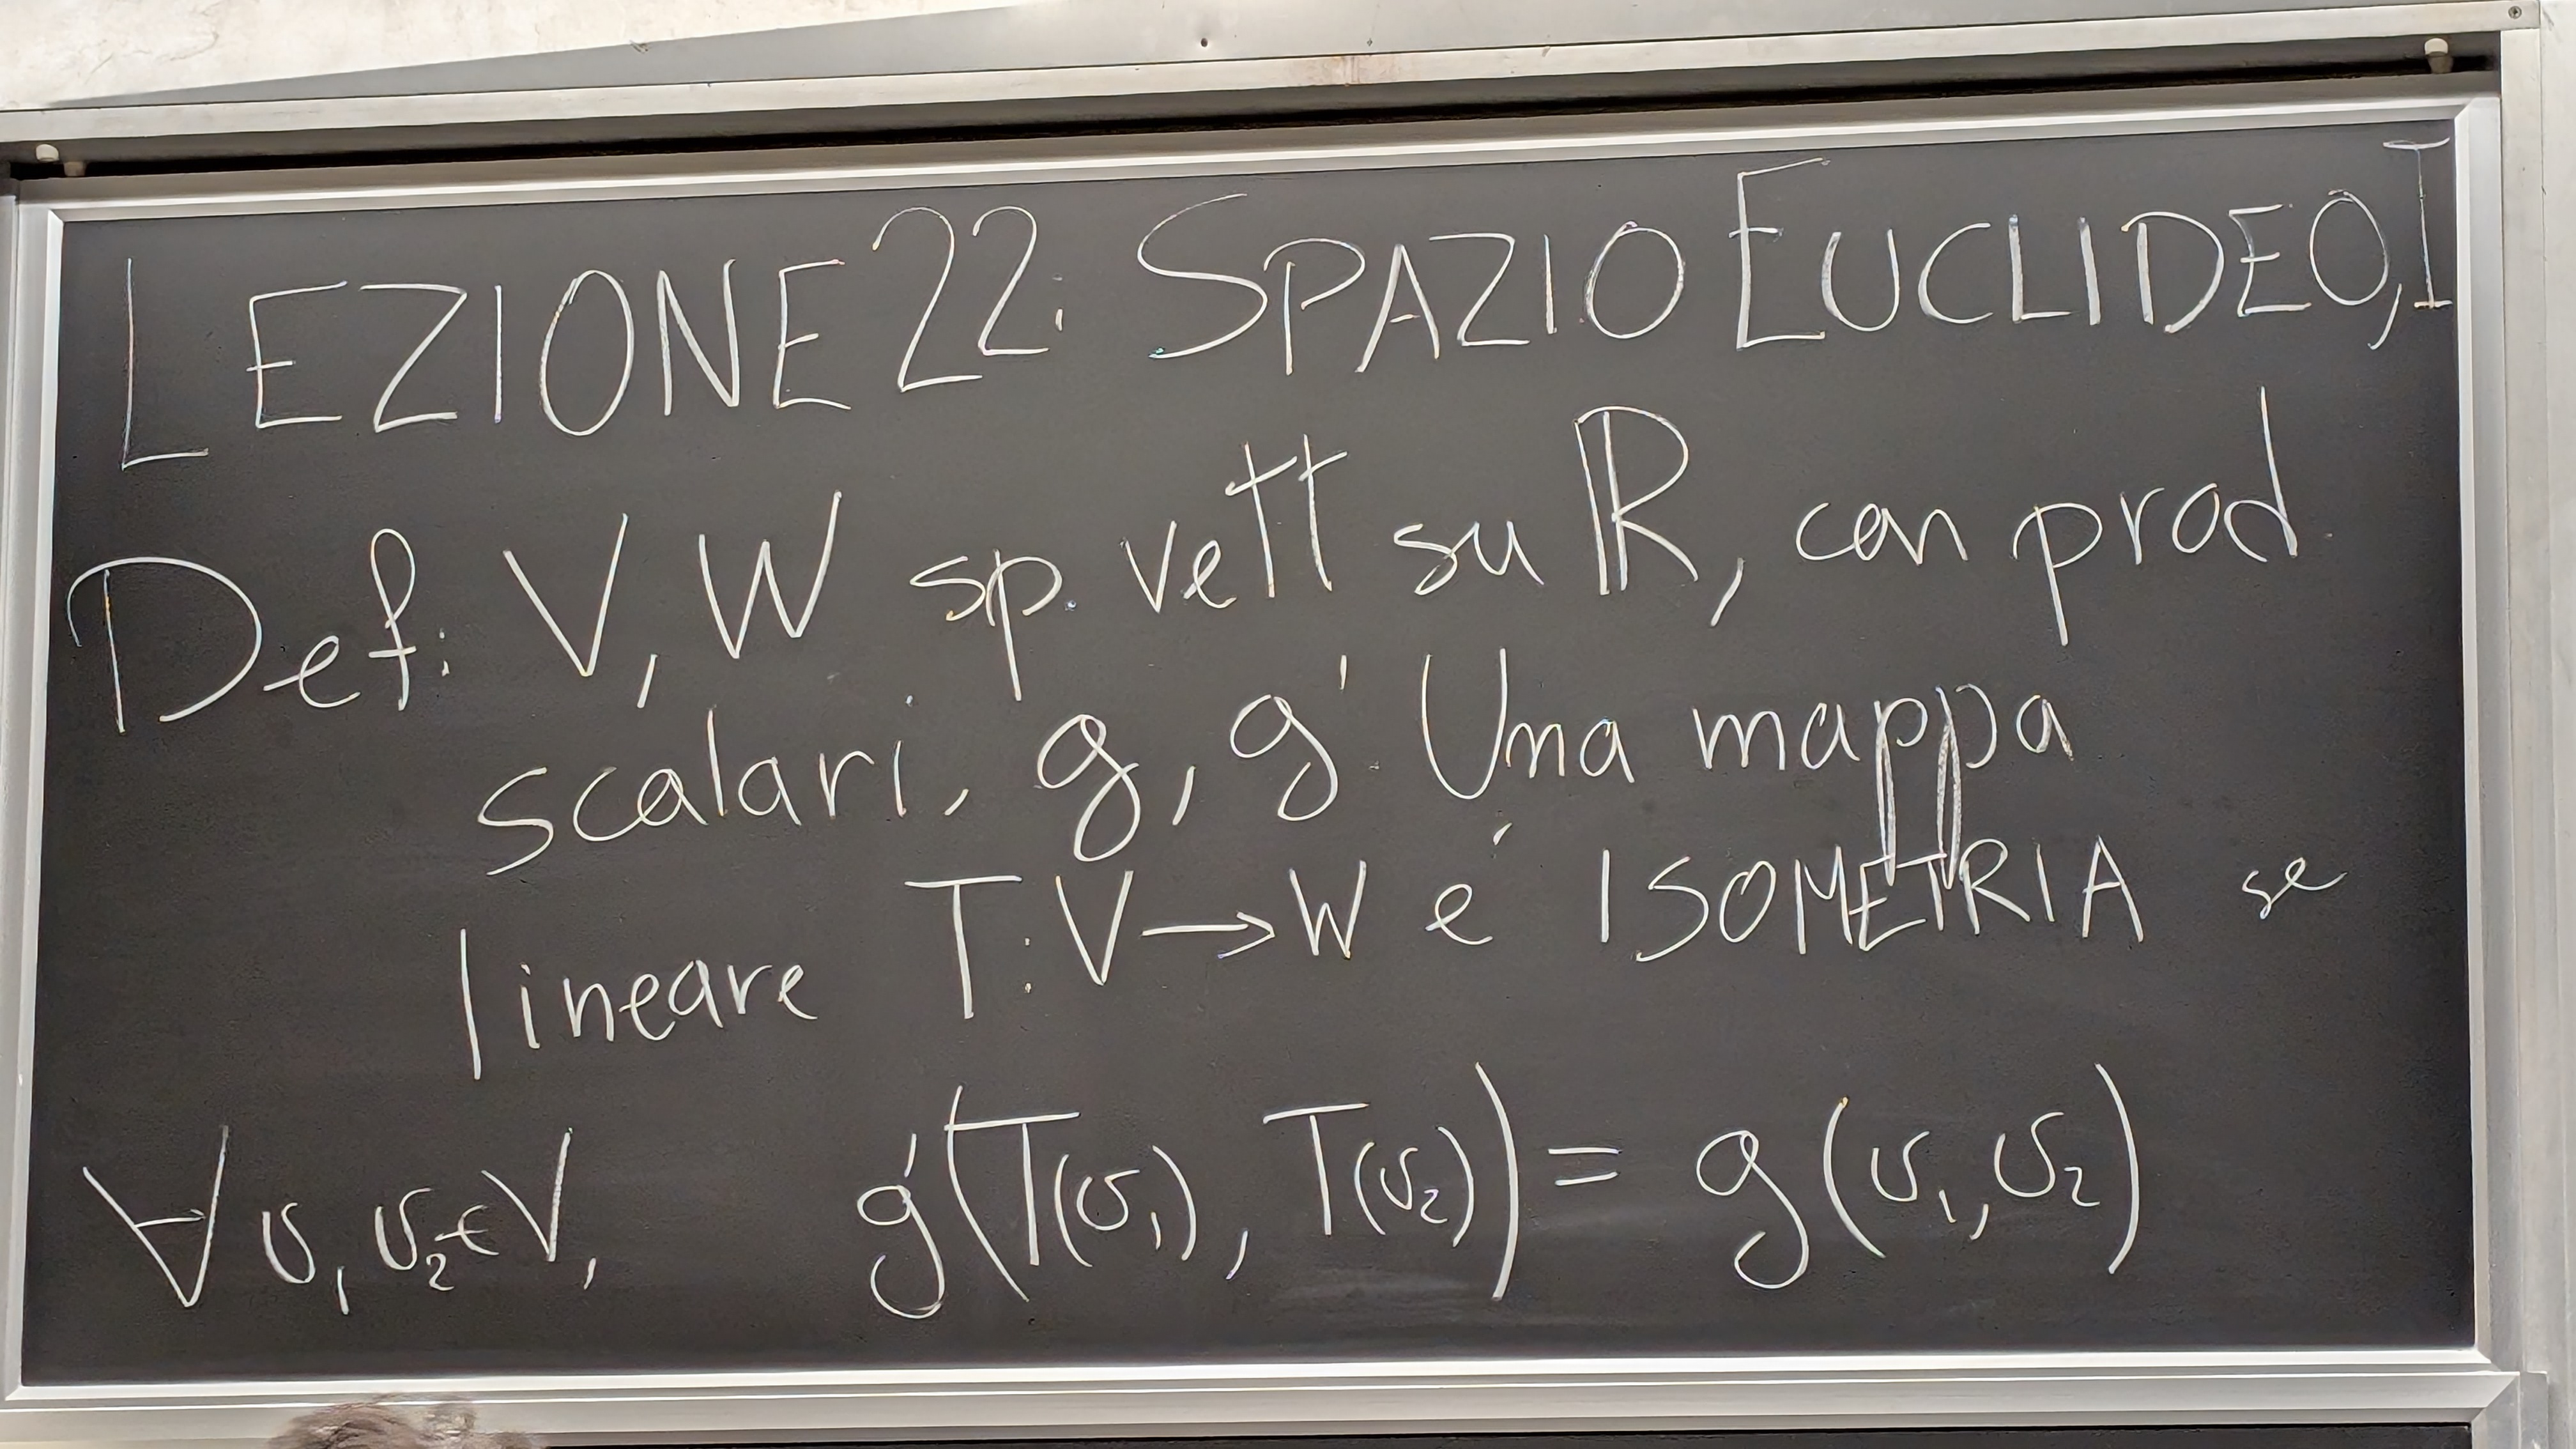 LEZIONE 22: SPAZIO EUCLIDEO, I
Def: V, W sp. vett su ℝ, con prod.
scalari, g, g'. Una mappa
lineare T: V → W é ISOMETRIA se
∀ v₁, v₂ ∈ V, g'(T(v₁), T(v₂)) = g(v₁, v₂)